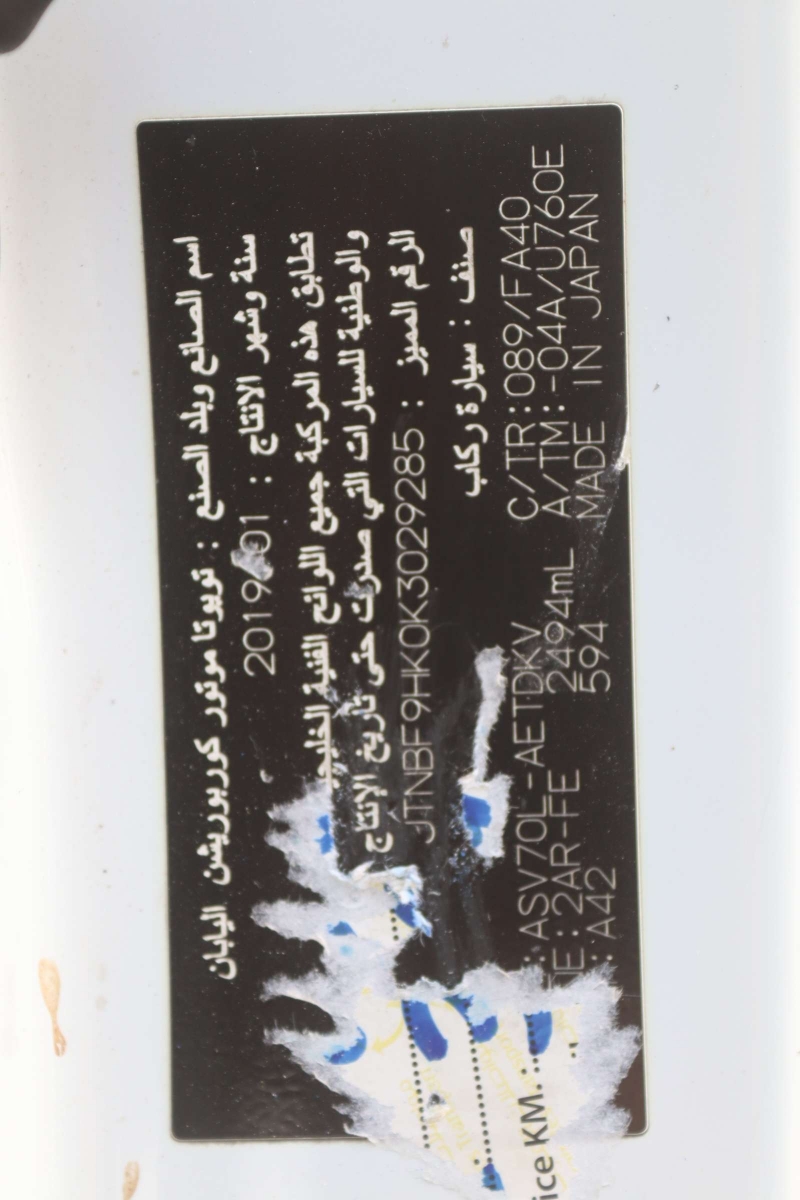 اسم الصانع وبلد الصنع : تويوتا موتور كوربوريشن اليابان
سنة وشهر الانتاج : 2019 01
تطابق هذه المركبة جميع اللوائح الفنية الخليجية
والوطنية للسيارات التي صدرت حتى تاريخ الانتاج
الرقم المميز : JTNBF9HK0K3029285
صنف : سيارة ركاب
:ASV70L-AETDKV C/TR:089/FA40
:2AR-FE 2494mL A/TM:-04A/U760E
:A42 594 MADE IN JAPAN
ice KM. :